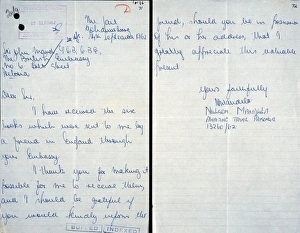 The Fort
Johannesburg
Sir John Maud
The British Embassy
Pretoria
Dear Sir,
I have received the six
books which were sent to me by
a friend in England through
your Embassy.
I thank you for making it
possible for me to receive them,
and I should be grateful if
you would kindly inform the
friend, should you be in possession
of his or her address, that I
greatly appreciate this valuable
present
Yours faithfully
NMandela
NELSON MANDELA
AWAITING TRIAL PRISONER
13260/62